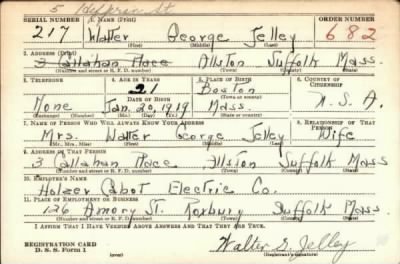 5 Jefferson St
SERIAL NUMBER 1. NAME (Print) ORDER NUMBER
217 Walter George Jelley 682
(First) (Middle) (Last)
2. ADDRESS (Print)
3 Callahan Place Allston Suffolk Mass.
(Number and street or R. F. D. number) (Town) (County) (State)
3. TELEPHONE 4. AGE IN YEARS 5. PLACE OF BIRTH 6. COUNTRY OF CITIZENSHIP
21 Boston
DATE OF BIRTH (Town or county)
None Jan. 20, 1919 Mass. U. S. A.
(Exchange) (Number) (Mo.) (Day) (Yr.) (State or country)
7. NAME OF PERSON WHO WILL ALWAYS KNOW YOUR ADDRESS 8. RELATIONSHIP OF THAT PERSON
Mrs. Walter George Jelley Wife
(Mr., Mrs., Miss) (First) (Middle) (Last)
9. ADDRESS OF THAT PERSON
3 Callahan Place Allston Suffolk Mass
(Number and street or R. F. D. number) (Town) (County) (State)
10. EMPLOYER'S NAME
Holzer Cabot Electric Co.
11. PLACE OF EMPLOYMENT OR BUSINESS
126 Amory St. Roxbury Suffolk Mass
(Number and street or R. F. D. number) (Town) (County) (State)
I AFFIRM THAT I HAVE VERIFIED ABOVE ANSWERS AND THAT THEY ARE TRUE.
REGISTRATION CARD
D. S. S. Form 1
Walter G. Jelley
(Registrant's signature)